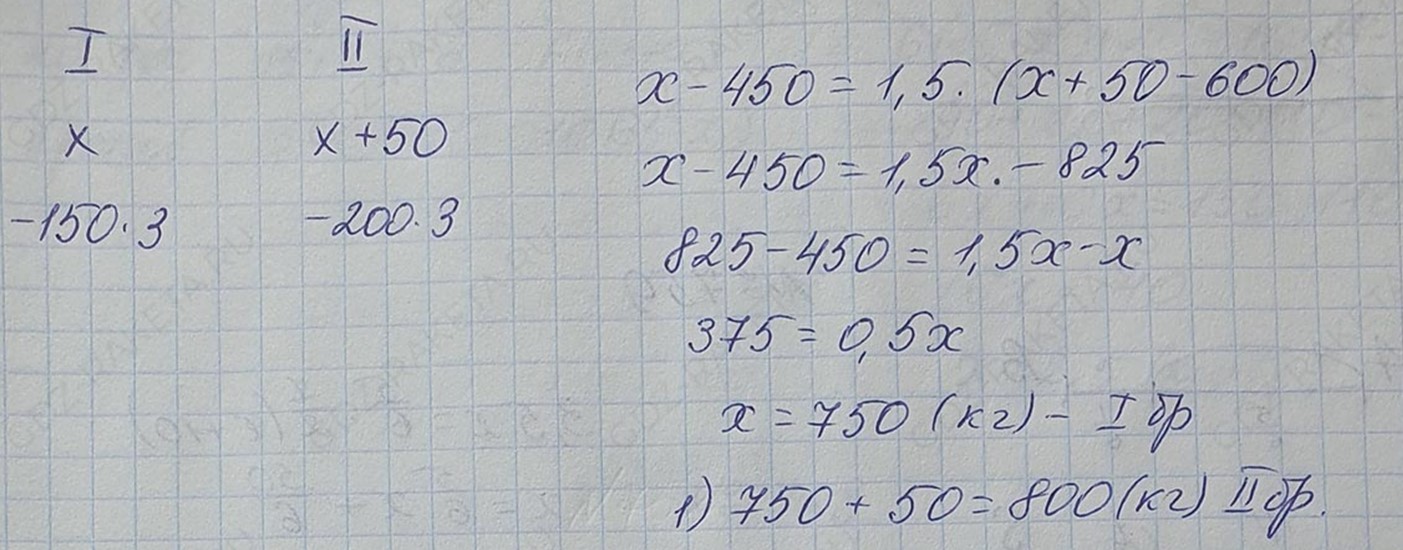 I II
x x+50
-150·3 -200·3
x-450=1,5.(x+50-600)
x-450=1,5x.-825
825-450=1,5x-x
375=0,5x
x=750 (кг)- I бр
1) 750+50=800(кг) II бр.